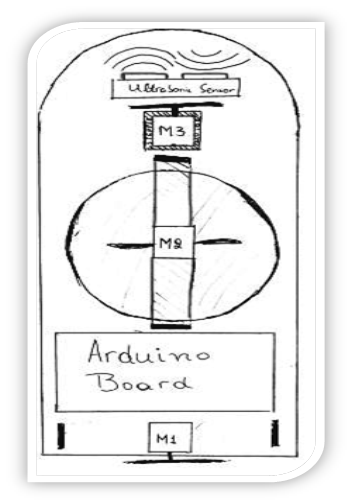 Ultrasonic Sensor
M3
M2
Arduino
Board
M1